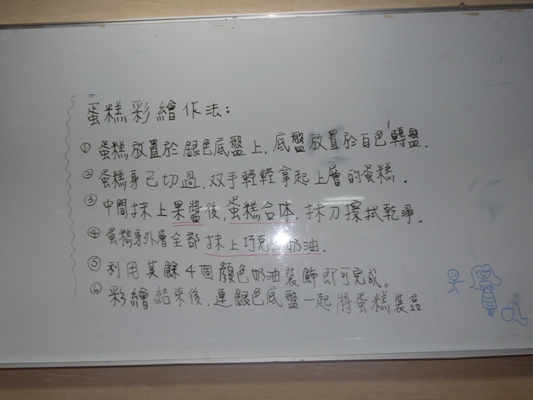 蛋糕彩繪作法：
① 蛋糕放置於銀色底盤上，底盤放置於白色轉盤．
② 蛋糕身已切過，双手輕輕拿起上層的蛋糕．
③ 中間抹上果醬後，蛋糕合体．抹刀擦拭乾淨．
④ 蛋糕身外層全部抹上巧克力奶油．
⑤ 利用其餘4個顏色奶油裝飾即可完成。
⑥ 彩繪結束後，連銀色底盤一起將蛋糕裝